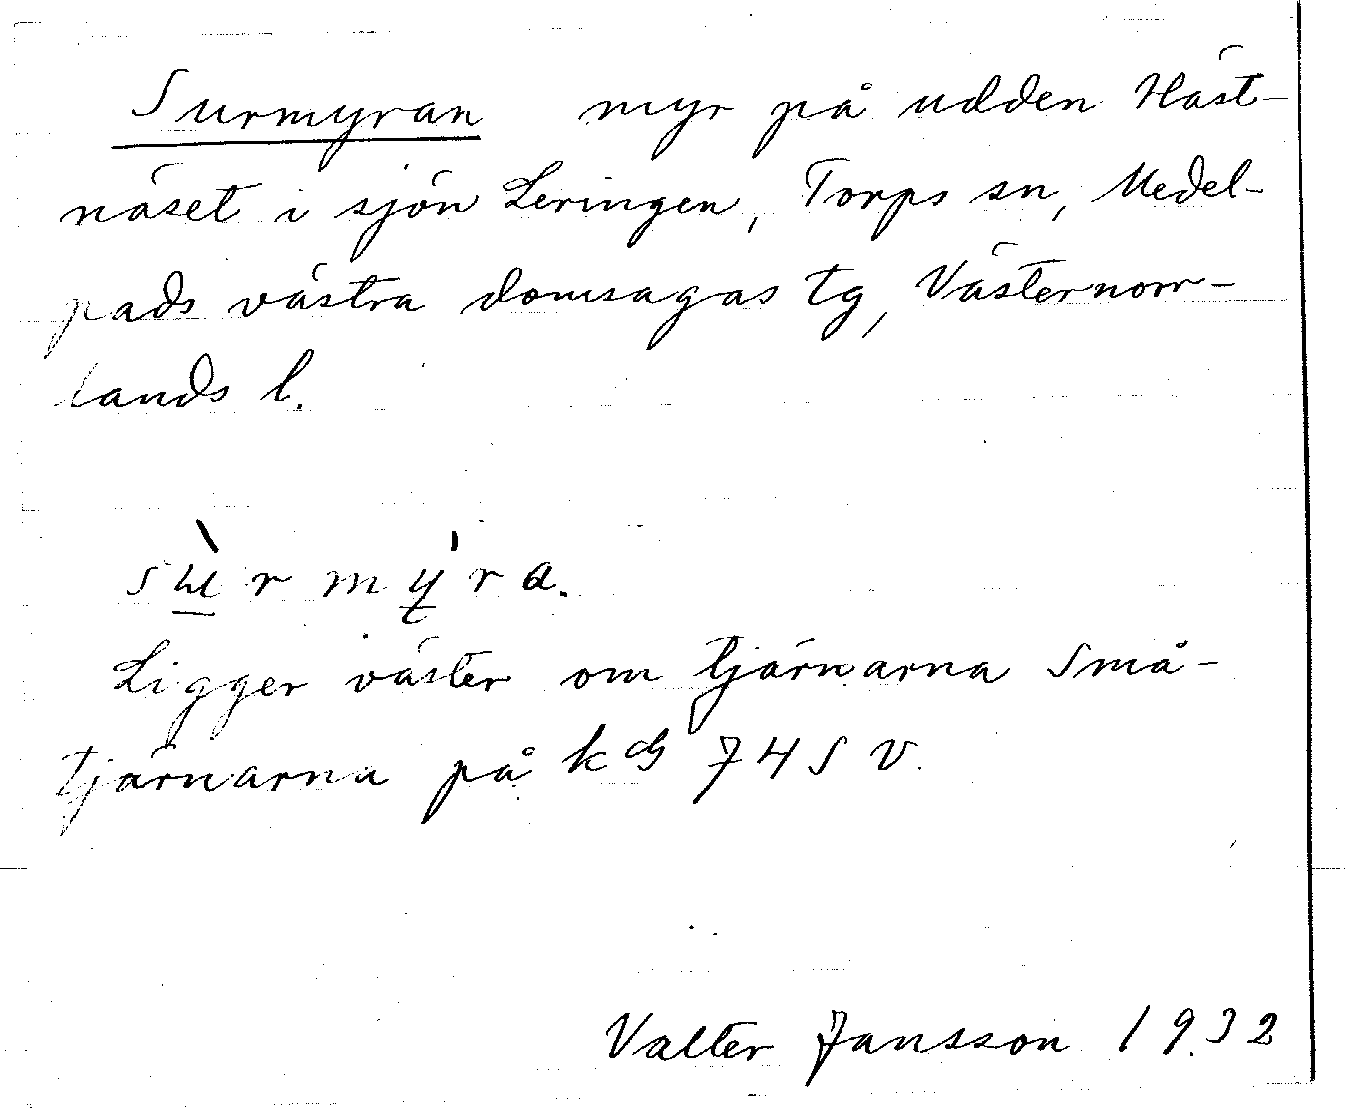 Surmyran myr på udden Häst-
näset i sjön Leringen, Torps sn, Medel-
pads västra domsagas tg, Västernorr-
lands l.
sù̱rmy̍ra.
Ligger väster om tjärnarna Små-
tjärnarna på kbl 74 S V.
Valter Jansson 1932